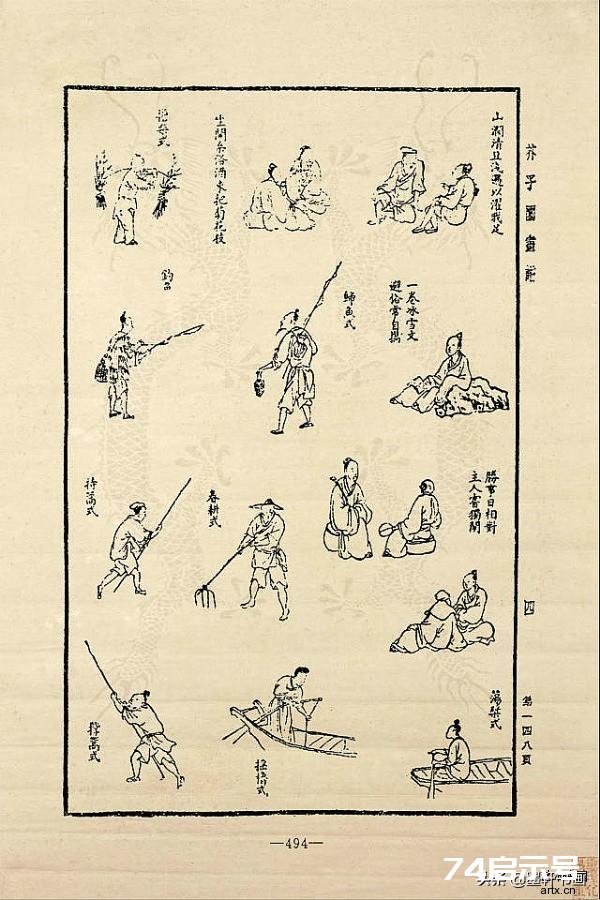 芥子園畫譜
四
第一四八頁
山澗清且淺遇以濯我足
坐開桑落酒來把菊花枝
一卷冰雪文
避俗常自攜
歸魚式
釣魚
勝事日相對
主人常獨閒
春耕式
持篙式
蕩槳式
搖櫓式
撐篙式
—494—
74启示号
artx.cn